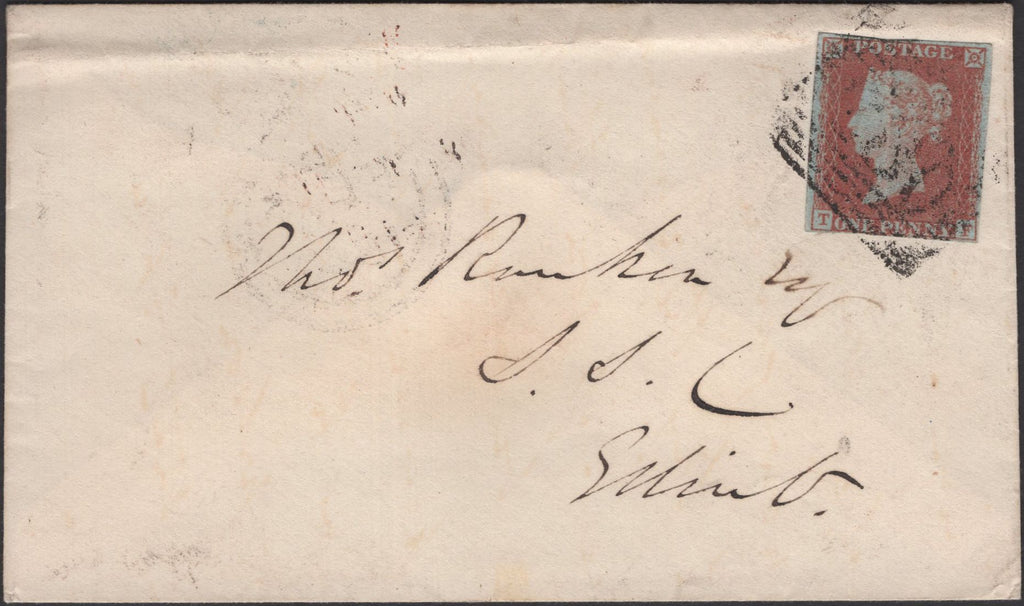 POSTAGE
T ONE PENNY F
Thos. Ranken Esq
S. S. C
Edinb.